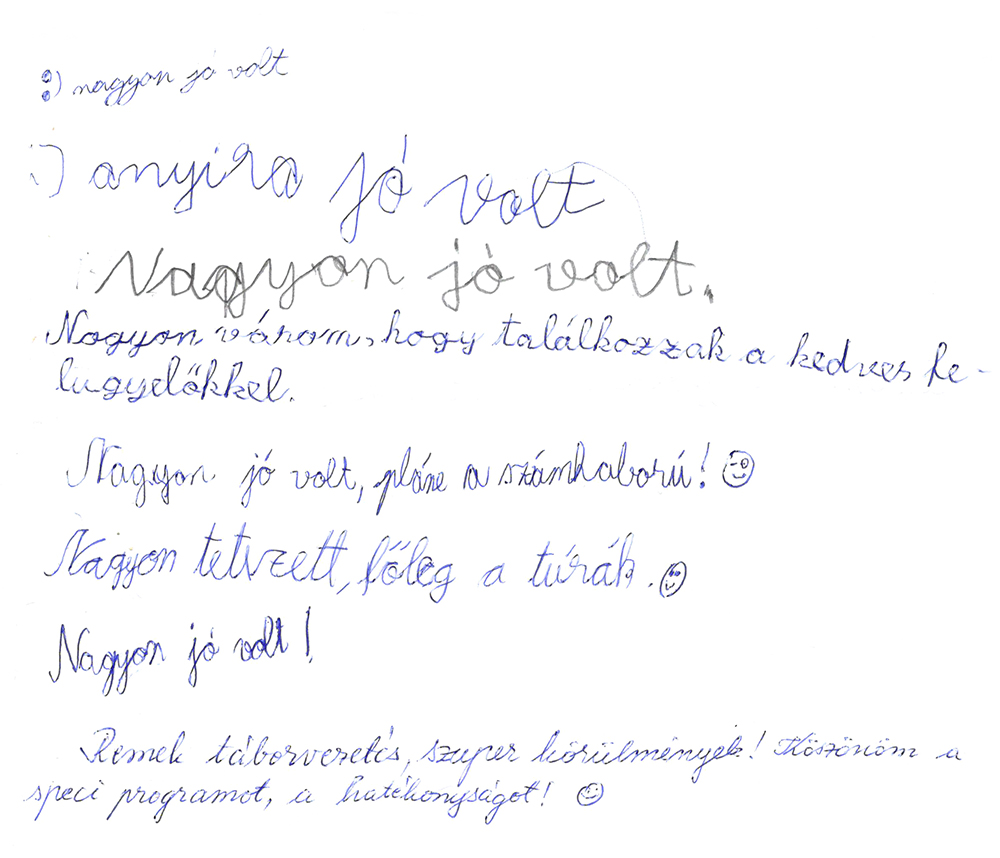 :) nagyon jó volt
:) anyira jó volt
Nagyon jó volt.
Nagyon várom, hogy találkozzak a kedves fe-
lügyelőkkel.
Nagyon jó volt, pláne a számháború! ☺
Nagyon tetvzett, főleg a túrák. ☺
Nagyon jó volt!
Remek táborvezetés, szuper körülmények! Köszönöm a
speci programot, a hatékonyságot! ☺